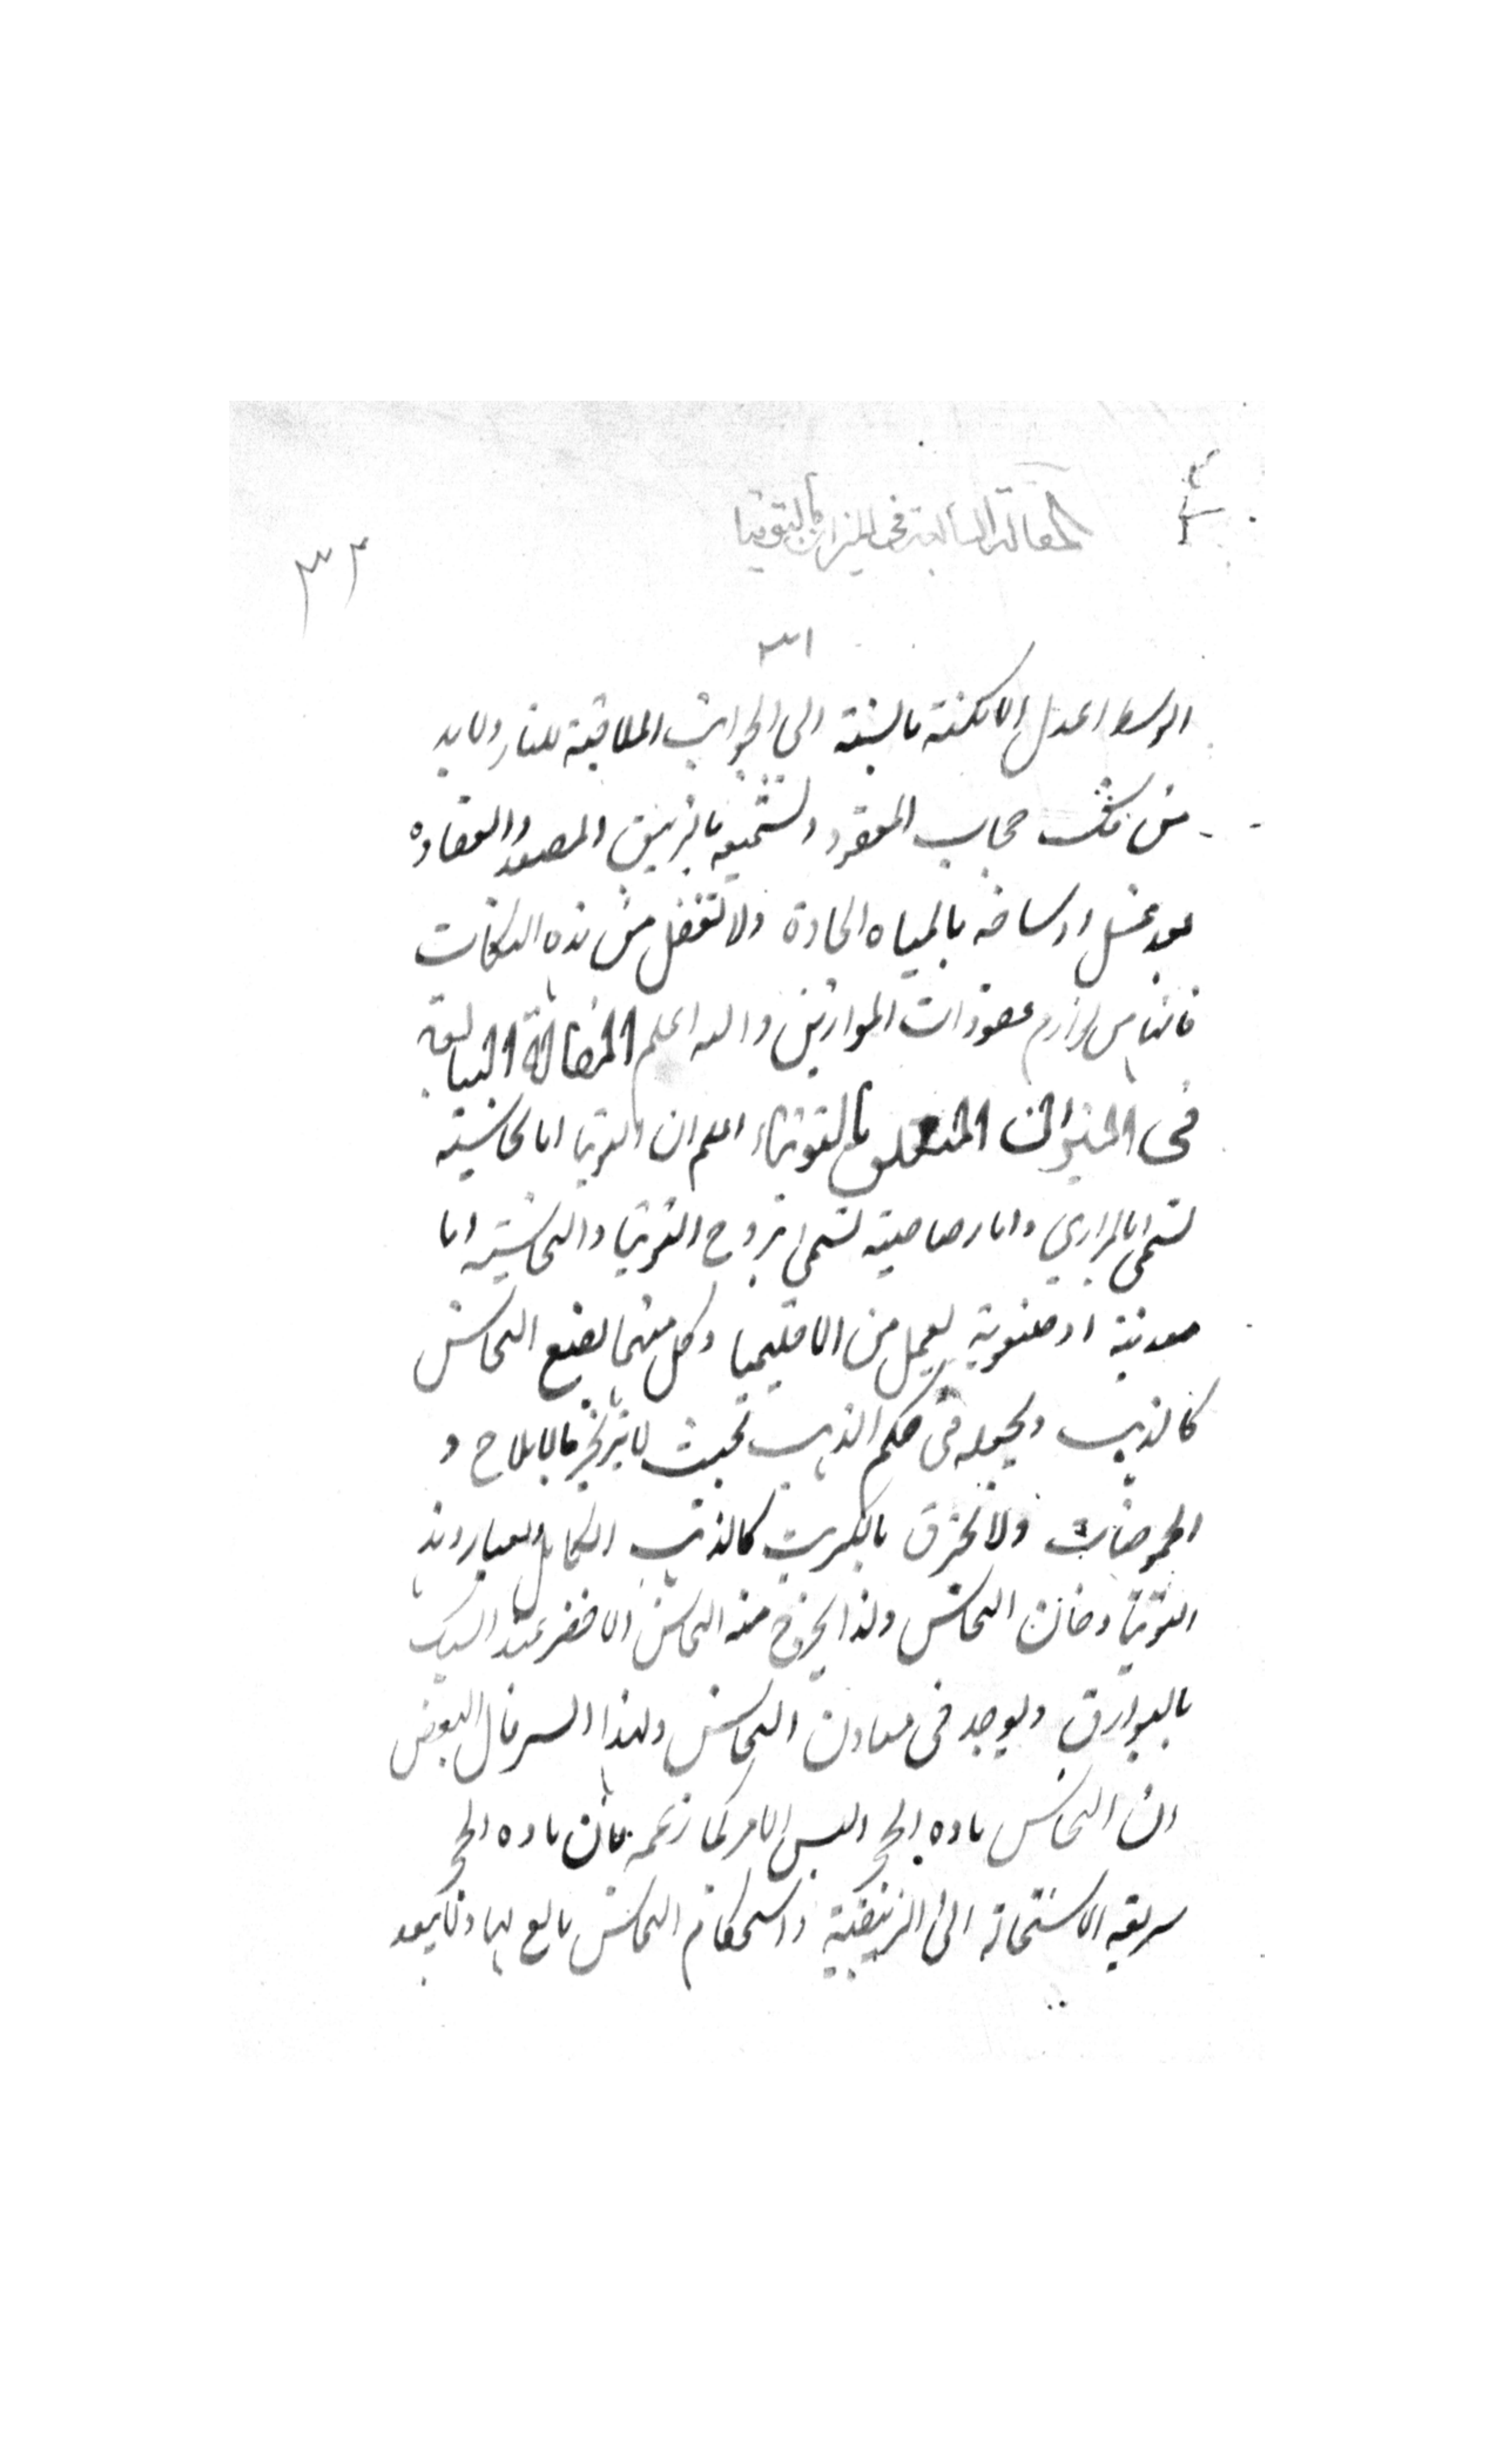 المقالة السابعة في الميزان بالتوتيا
٣٢
٣١
الوسط اعدل الامكنة بالنسبة الى الجوانب الملاقية للنار ولابد
من فك حجاب المعقود وتشميعه بالزيبق المصعد والعقاده
بعد غسل اوساخه بالمياه الحادة ولا تغفل من هذه النكات
فانها من لوازم عقودات الموازين والله اعلم المقالة السابعة
في الميزان المتعلق بالتوتياء اعلم ان التوتيا اما نحاسية
تسمى بالمرازبي واما رصاصية تسمى بروح التوتيا والنحاسية اما
معدنية او مصنوعية يعمل من الاقليميا وكل منهما يصبغ النحاس
كالذهب ويجعله في حكم الذهب بحيث لا يتزنجر بالاملاح و
الحموضات ولا تحترق بالكبريت كالذهب الكامل العيار وهذه
التوتيا دخان النحاس ولذا يخرج منه النحاس الاخضر عند السبك
بالبوارق ويوجد في معادن النحاس ولهذا السر قال البعض
ان النحاس ماده الحجر وليس الامر كما زعمه فان ماده الحجر
سريعة الاستحالة الى الزيبقية واستحكام النحاس مانع لها وانما يعد